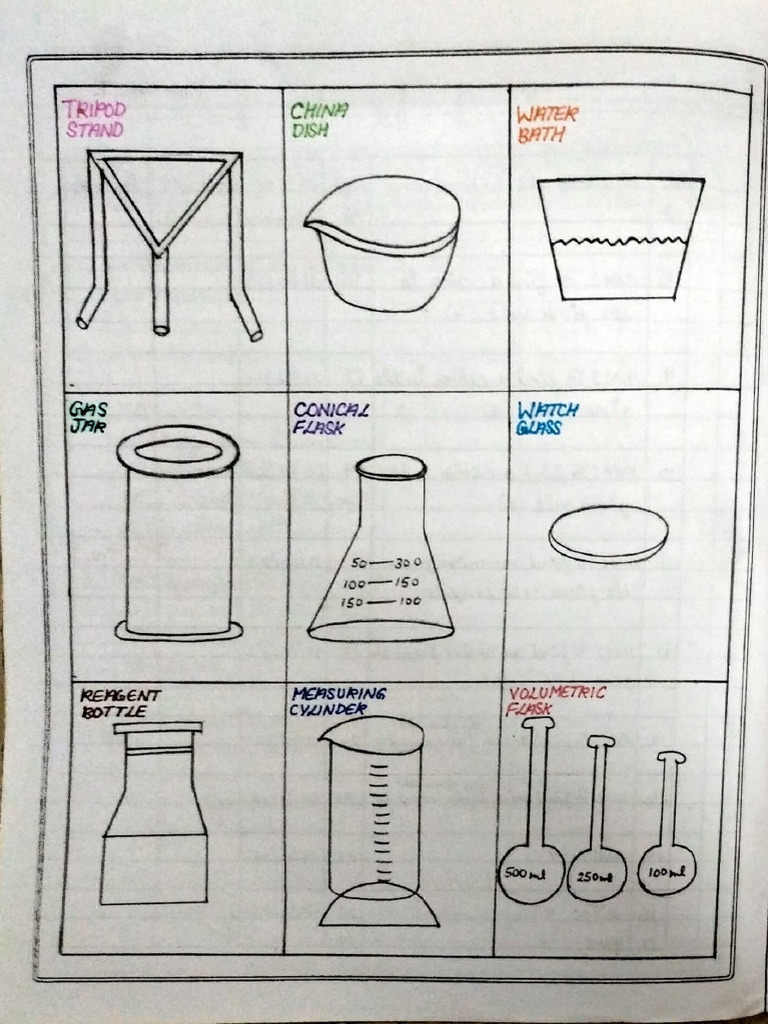 TRIPOD
STAND
CHINA
DISH
WATER
BATH
GAS
JAR
CONICAL
FLASK
50 — 300
100 — 150
150 — 100
WATCH
GLASS
REAGENT
BOTTLE
MEASURING
CYLINDER
VOLUMETRIC
FLASK
500 ml
250 ml
100 ml